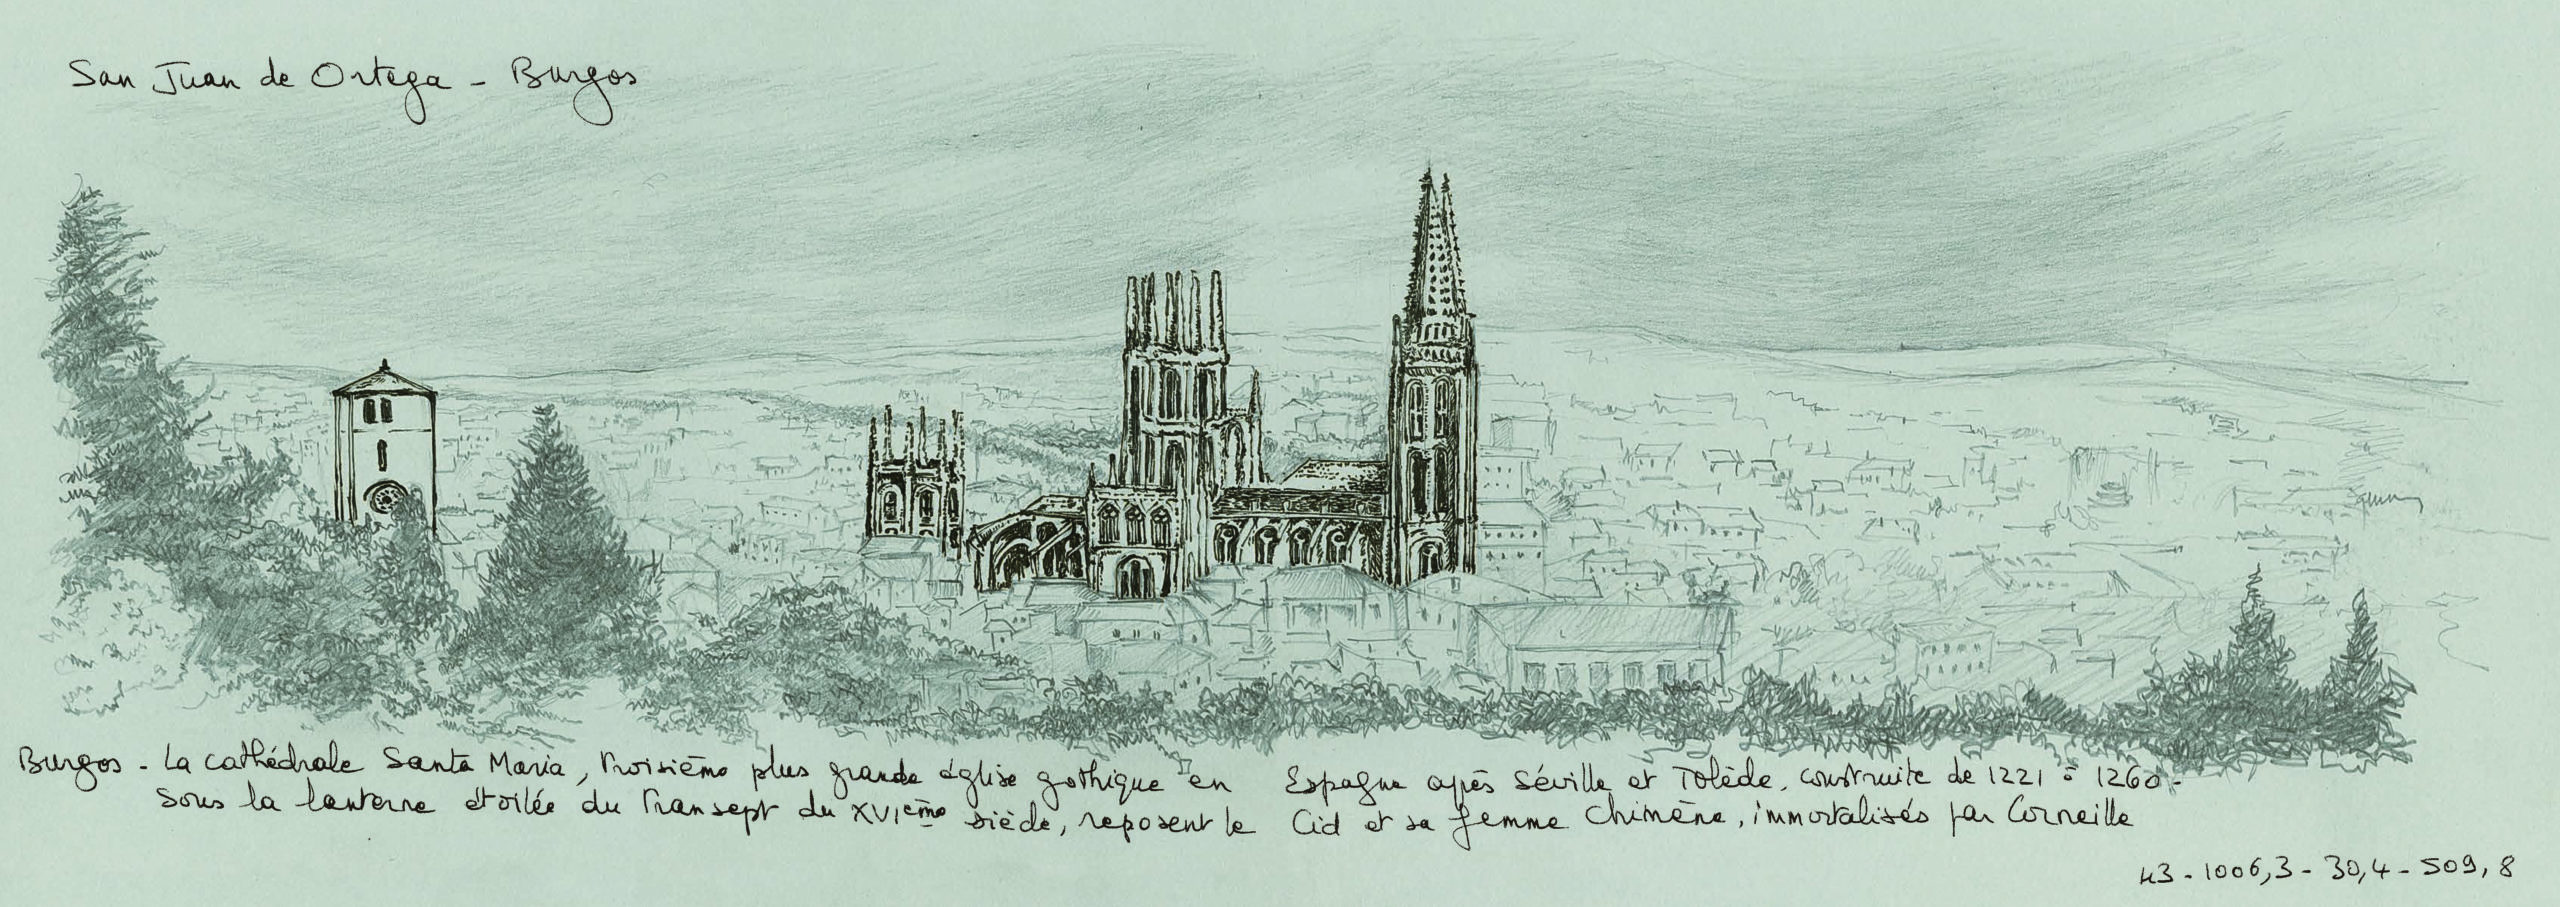 San Juan de Ortega - Burgos
Burgos - La cathédrale Santa Maria, troisième plus grande église gothique en Espagne après Séville et Tolède, construite de 1221 à 1260 -
Sous la lanterne étoilée du transept du XVIème siècle, reposent le Cid et sa femme Chimène, immortalisés par Corneille
43 - 1006,3 - 30,4 - 509,8